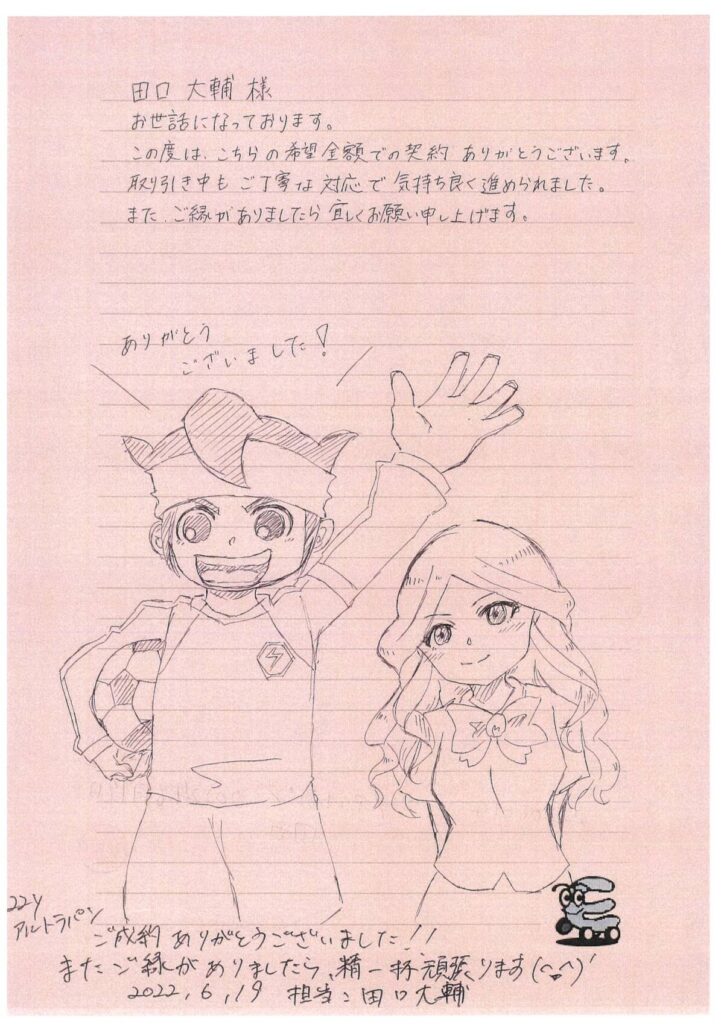 田口 大輔 様
お世話になっております。
この度は、こちらの希望金額での契約 ありがとうございます。
取り引き中も ご丁寧な対応で 気持ち良く進められました。
また、ご縁がありましたら 宜しくお願い申し上げます。
ありがとう
ございました!
22y
アルトラパン
ご成約 ありがとうございました!!
またご縁がありましたら、精一杯頑張ります(^_^)'
2022,6,19 担当:田口大輔